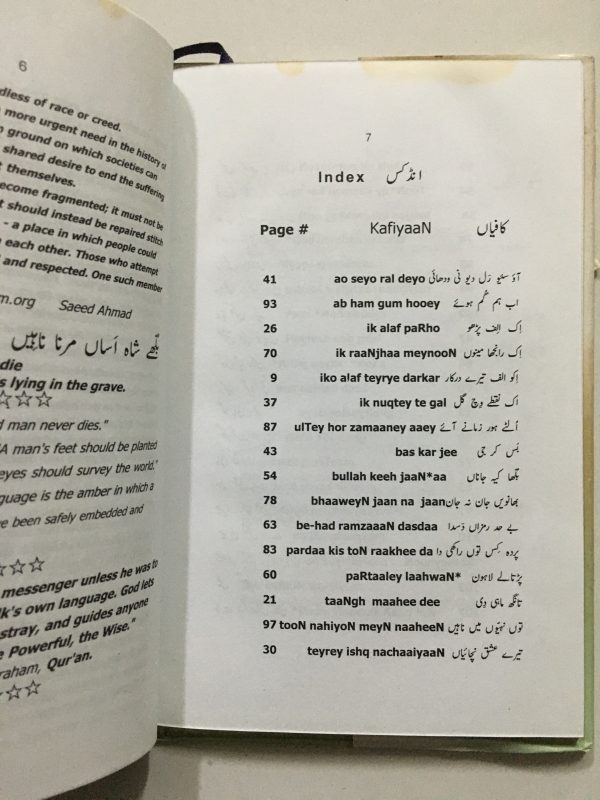 6
dless of race or creed.
more urgent need in the history of
ground on which societies can
shared desire to end the suffering
themselves.
ecome fragmented; it must not be
t should instead be repaired stitch
- a place in which people could
each other. Those who attempt
and respected. One such member
m.org Saeed Ahmad
بلّھے شاہ اَساں مرنا ناہیں
die
s lying in the grave.
☆☆☆
d man never dies."
A man's feet should be planted
eyes should survey the world.'
guage is the amber in which a
ve been safely embedded and
☆☆☆
messenger unless he was to
lk's own language. God lets
stray, and guides anyone
e Powerful, the Wise."
raham, Qur'an.
☆☆
7
Index انڈکس
Page # KafiyaaN کافیاں
41 ao seyo ral deyo آؤ سیّیو رَل دیو نی ودھائی
93 ab ham gum hooey اب ہم گم ہوئے
26 ik alaf paRho اِک الِف پڑھو
70 ik raaNjhaa meynooN اِک رانجھا مینوں
9 iko alaf teyrye darkar اِکو الف تیرے درکار
37 ik nuqtey te gal اک نقطے وِچ گل
87 ulTey hor zamaaney aaey اُلٹے ہور زمانے آئے
43 bas kar jee بَس کر جی
54 bullah keeh jaaN*aa بلّھا کیہ جاناں
78 bhaaweyN jaan na jaan بھانویں جان نہ جان
63 be-had ramzaaaN dasdaa بے حد رمزاں دَسدا
83 pardaa kis toN raakhee da پردہ کِس توں راکھی دا
60 paRtaaley laahwaN* پڑتالے لاہون
21 taaNgh maahee dee تانگھ ماہی دِی
97 tooN nahiyoN meyN naaheeN توں نہیّوں میں ناہیں
30 teyrey ishq nachaaiyaaN تیرے عشق نچائیاں